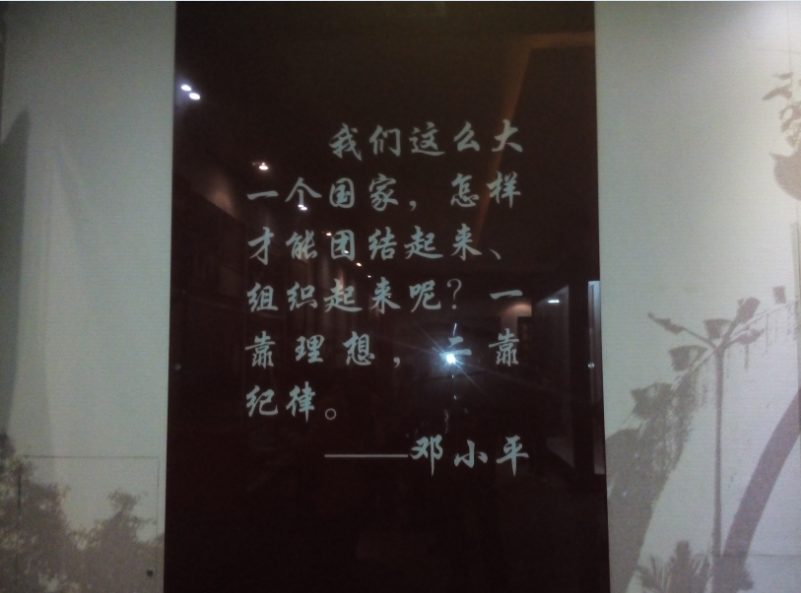 我们这么大
一个国家，怎样
才能团结起来、
组织起来呢？一
靠理想，二靠
纪律。
——邓小平